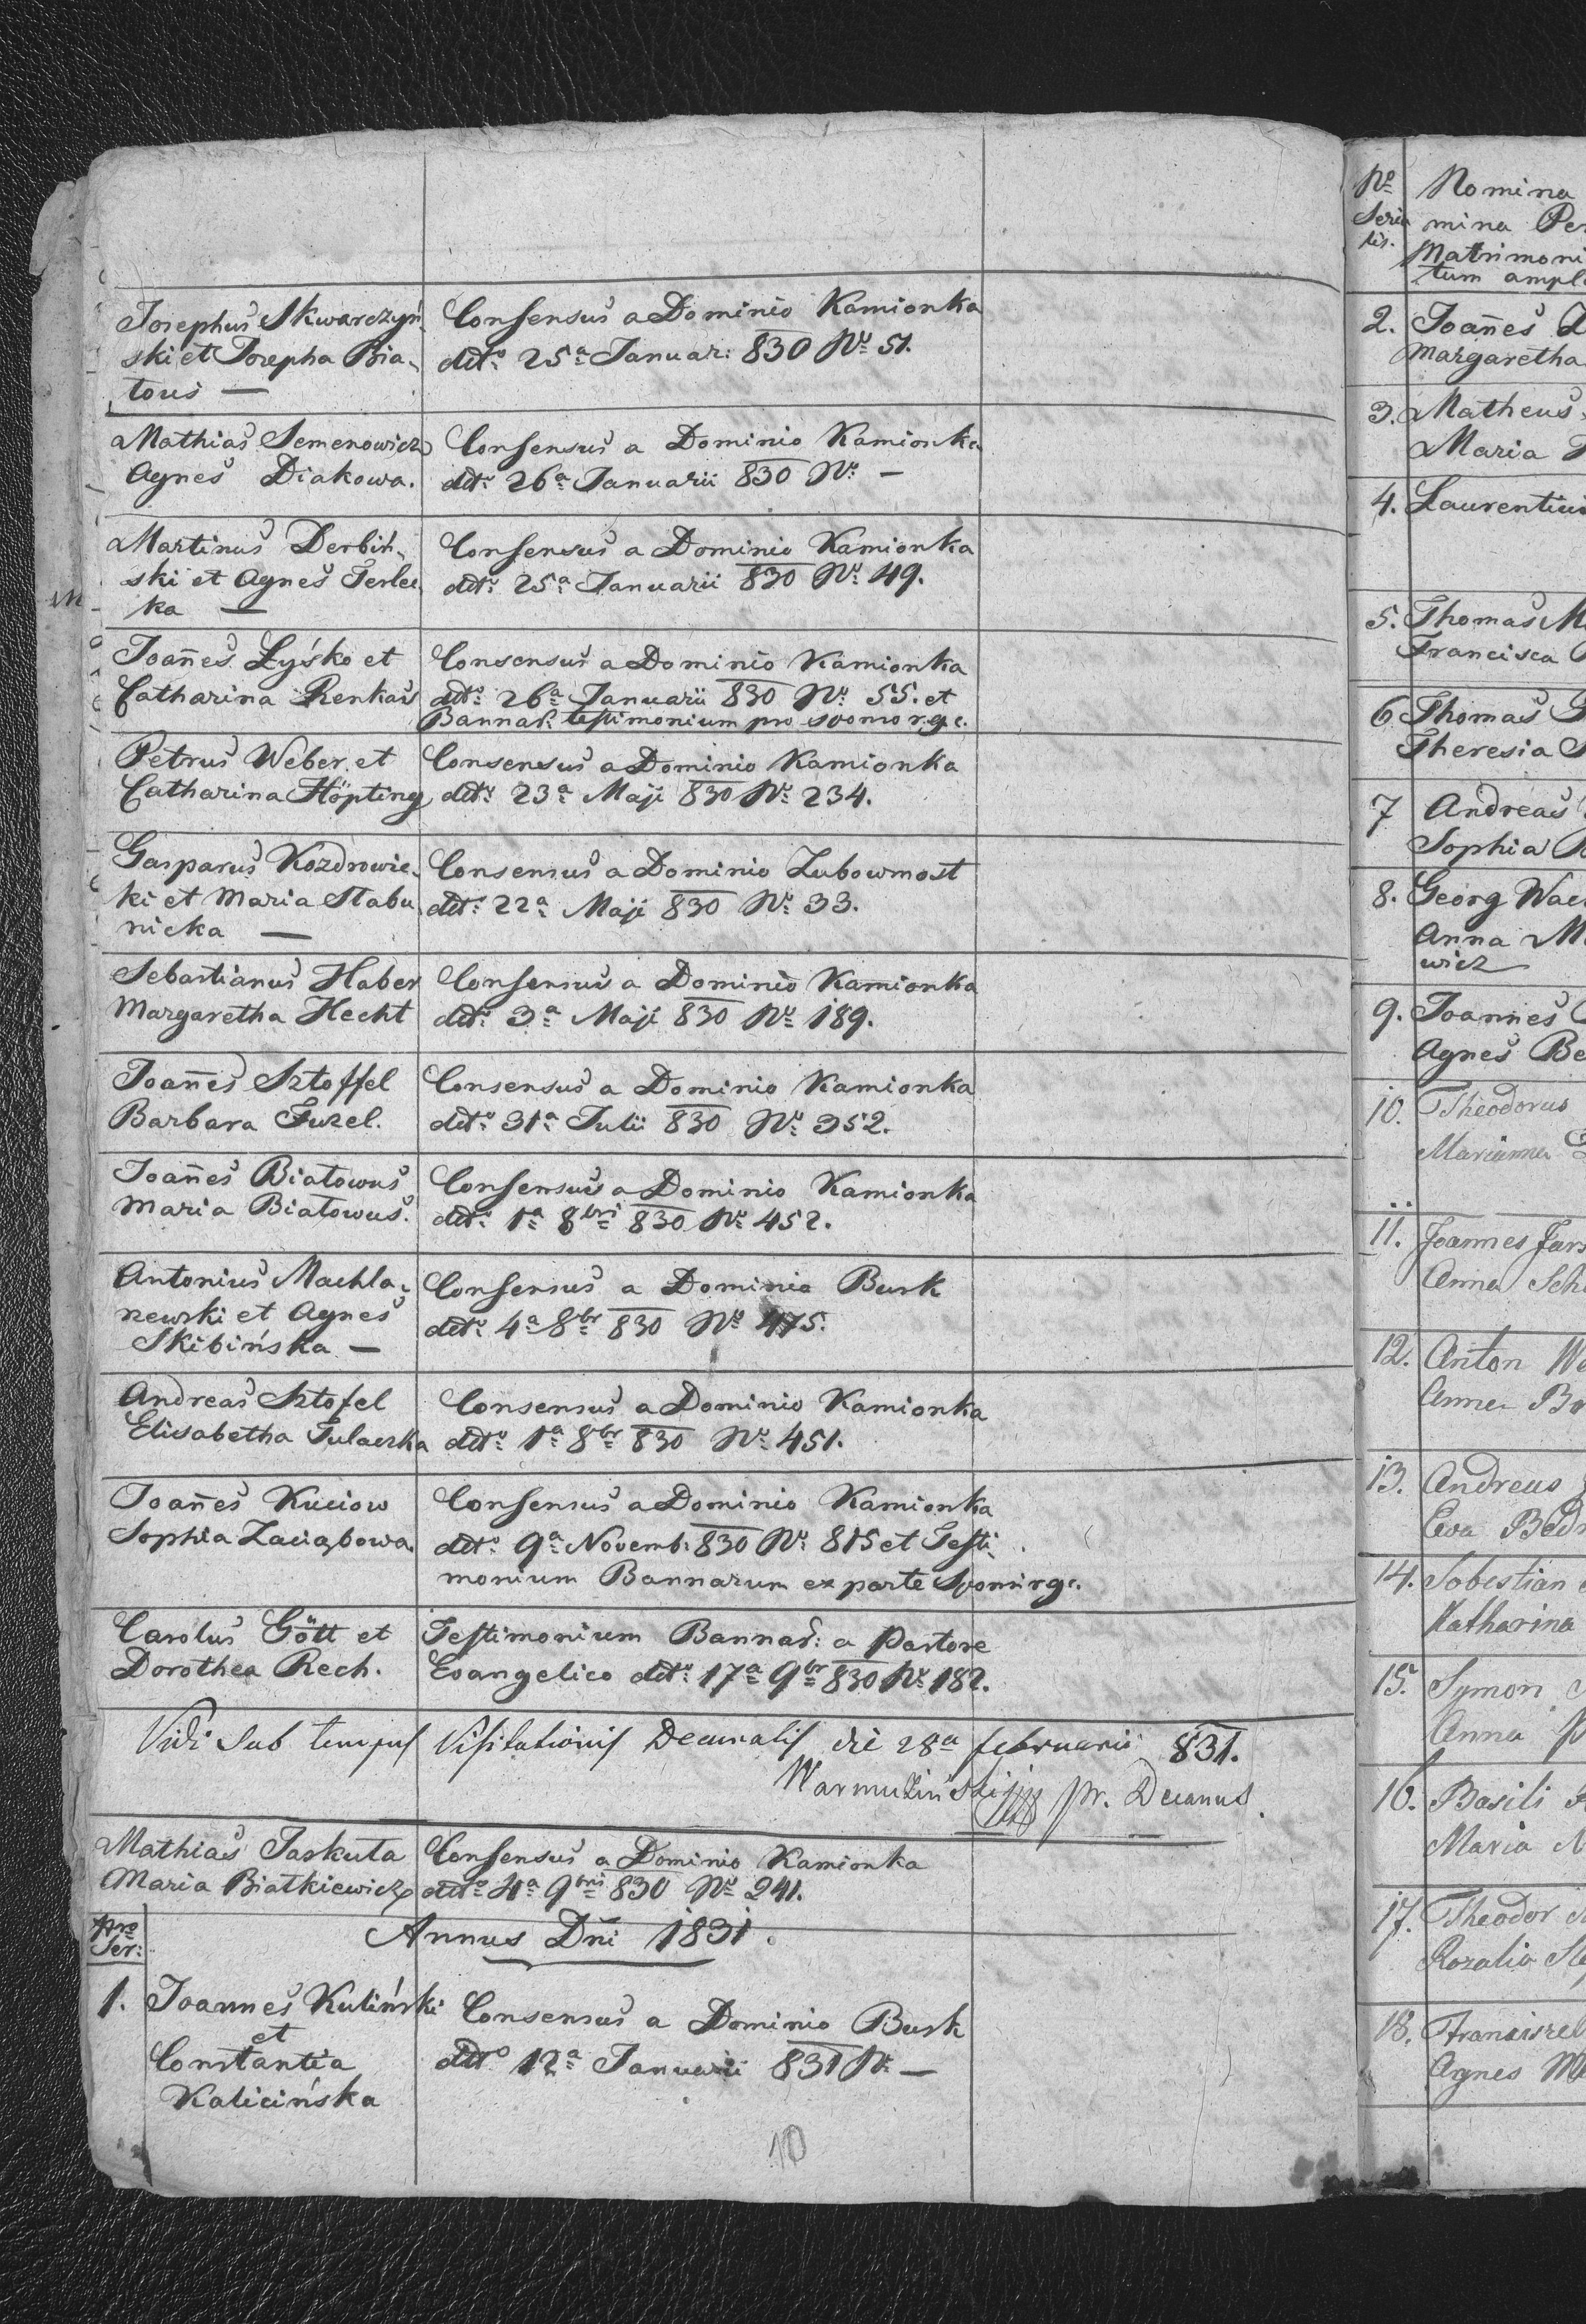 Josephus Skwarczyń-
ski et Josepha Bia-
tous —
Consensus a Dominio Kamionka
dtto 25a Januar: 830 No 51.
Mathias Semenowicz
Agnes Diakowa.
Consensus a Dominio Kamionka
dtto 26a Januarii 830 No —
Martinus Derbiń-
ski et Agnes Terlec-
ka —
Consensus a Dominio Kamionka
dtto 25a Januarii 830 No 49.
Joañes Łyśko et
Catharina Renkas
Consensus a Dominio Kamionka
dtto 26a Januarii 830 No 55. et
Bannar: testimonium pro
Petrus Weber et
Catharina Höpting
Consensus a Dominio Kamionka
dtto 23a Maji 830 No 234.
Gasparus Kozdrowic-
ki et Maria Stabu
nicka —
Consensus a Dominio Zubowmost
dtto 22a Maji 830 No 33.
Sebastianus Haber
Margaretha Hecht
Consensus a Dominio Kamionka
dtto 3a Maji 830 No 189.
Joañes Sztoffel
Barbara Fuzel.
Consensus a Dominio Kamionka
dtto 31a Julii 830 No 352.
Joañes Biatowus
Maria Biatowus.
Consensus a Dominio Kamionka
dtto 1a 8bri 830 No 452.
Antonius Machla-
newski et Agnes
Skibińska —
Consensus a Dominio Busk
dtto 4a 8br 830 No 475.
Andreas Sztofel
Elisabetha Tulaczka
Consensus a Dominio Kamionka
dtto 1a 8br 830 No 451.
Joañes Kuciow
Sophia Zaciąbowa.
Consensus a Dominio Kamionka
dtto 9a Novemb: 830 No 815 et Testi-
monium Bannarum ex parte
Carolus Gött et
Dorothea Rech.
Testimonium Bannar: a Pastore
Evangelico dtto 17a 9br 830 No 182.
Vidi sub tempus Visitationis Decanalis die 28a februarii 831.
Warmuziński pr. Decanus.
Mathias Jaskuta
Maria Biatkiewicz
Consensus a Dominio Kamionka
dtto 4a 9bris 830 No 241.
Nro
Ser:
Annus Dñi 1831.
1. Joannes Kuliński
et
Constantia
Kalicińska
Consensus a Dominio Busk
dtto 12a Januarii 831 No —
10
No
Seria
lis.
Nomina
mina Per
Matrimoni
tum ampl
2. Joañes
Margaretha
3. Matheus
Maria
4. Laurentius
5. Thomas M
Francisca
6 Thomas
Theresia
7 Andreas
Sophia
8. Georg Wac
Anna M
wicz
9. Joannes
Agnes Be
10. Theodorus
Marianna
11. Joannes Jan
Anna Sch
12. Anton Wo
Anna Bo
13. Andreas
Eva Bed
14. Sobestian
Katharina
15. Symon
Anna
16. Basili
Maria N
17. Theodor
Rozalia
18. Franciszek
Agnes M